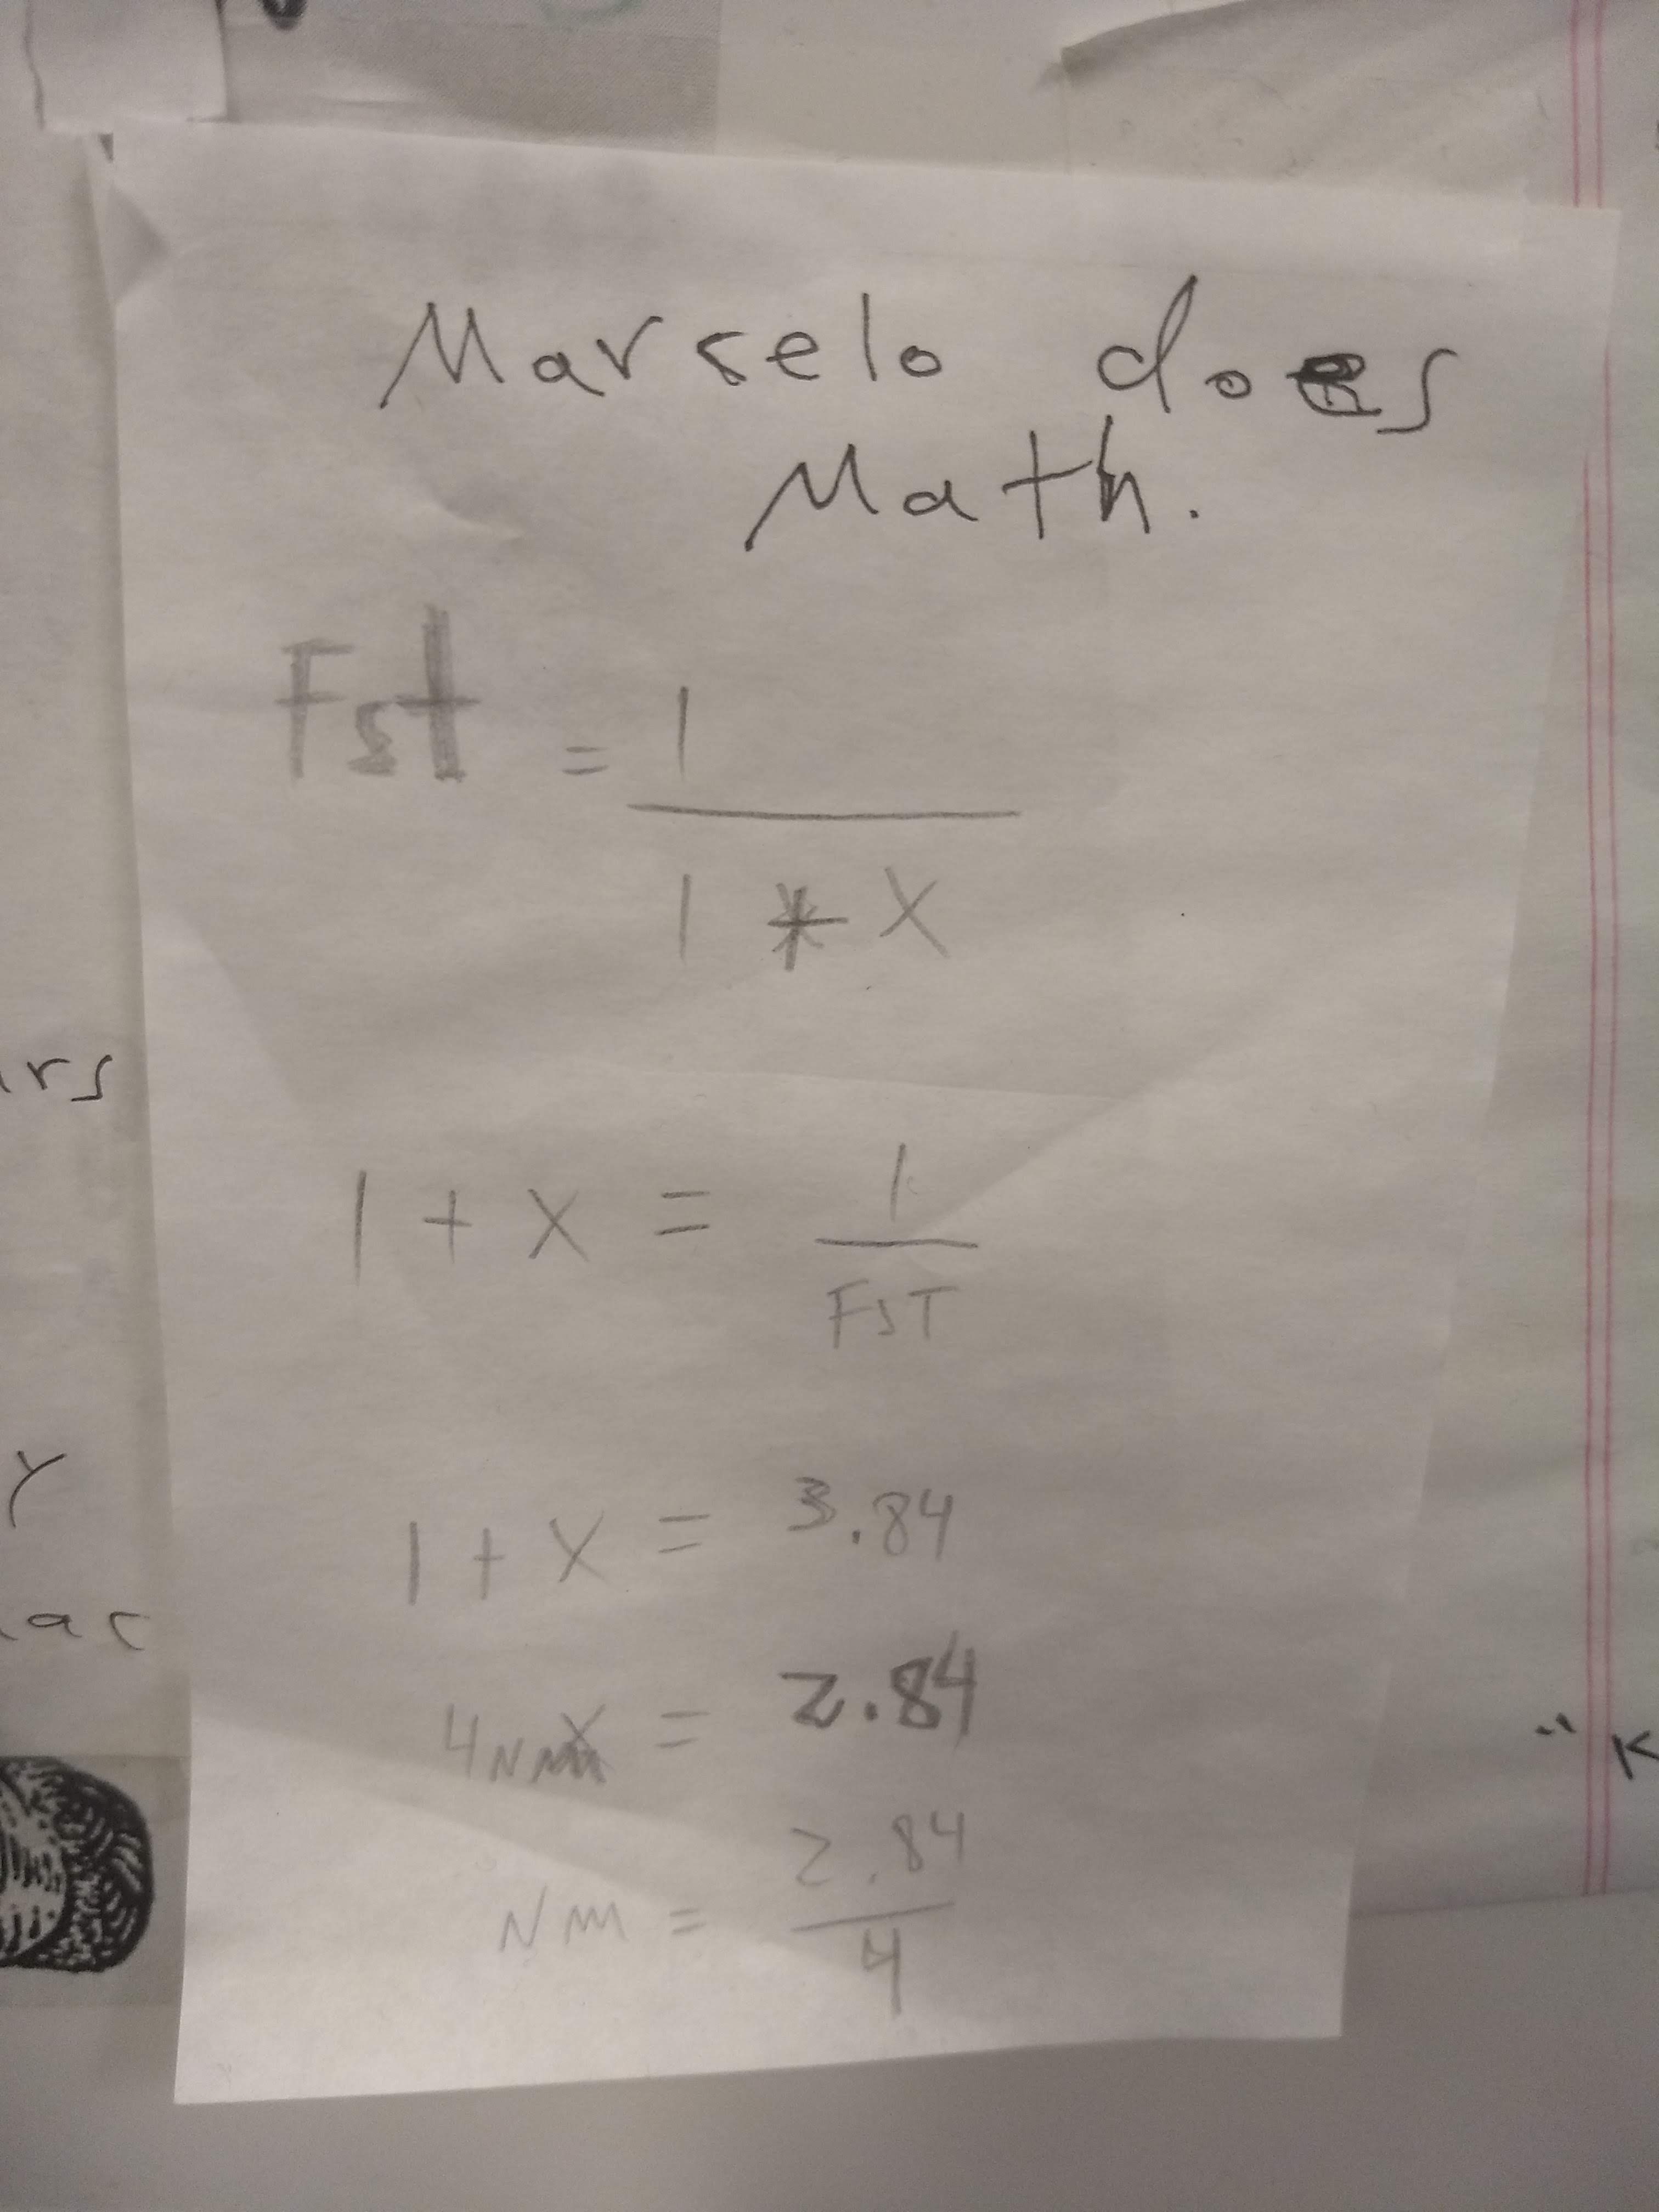 Marselo does
Math.
Fst = 1
1 + X
1 + X = 1
FST
1 + X = 3.84
4Nm = 2.84
Nm = 2.84
4
rs
Y
ac
" K